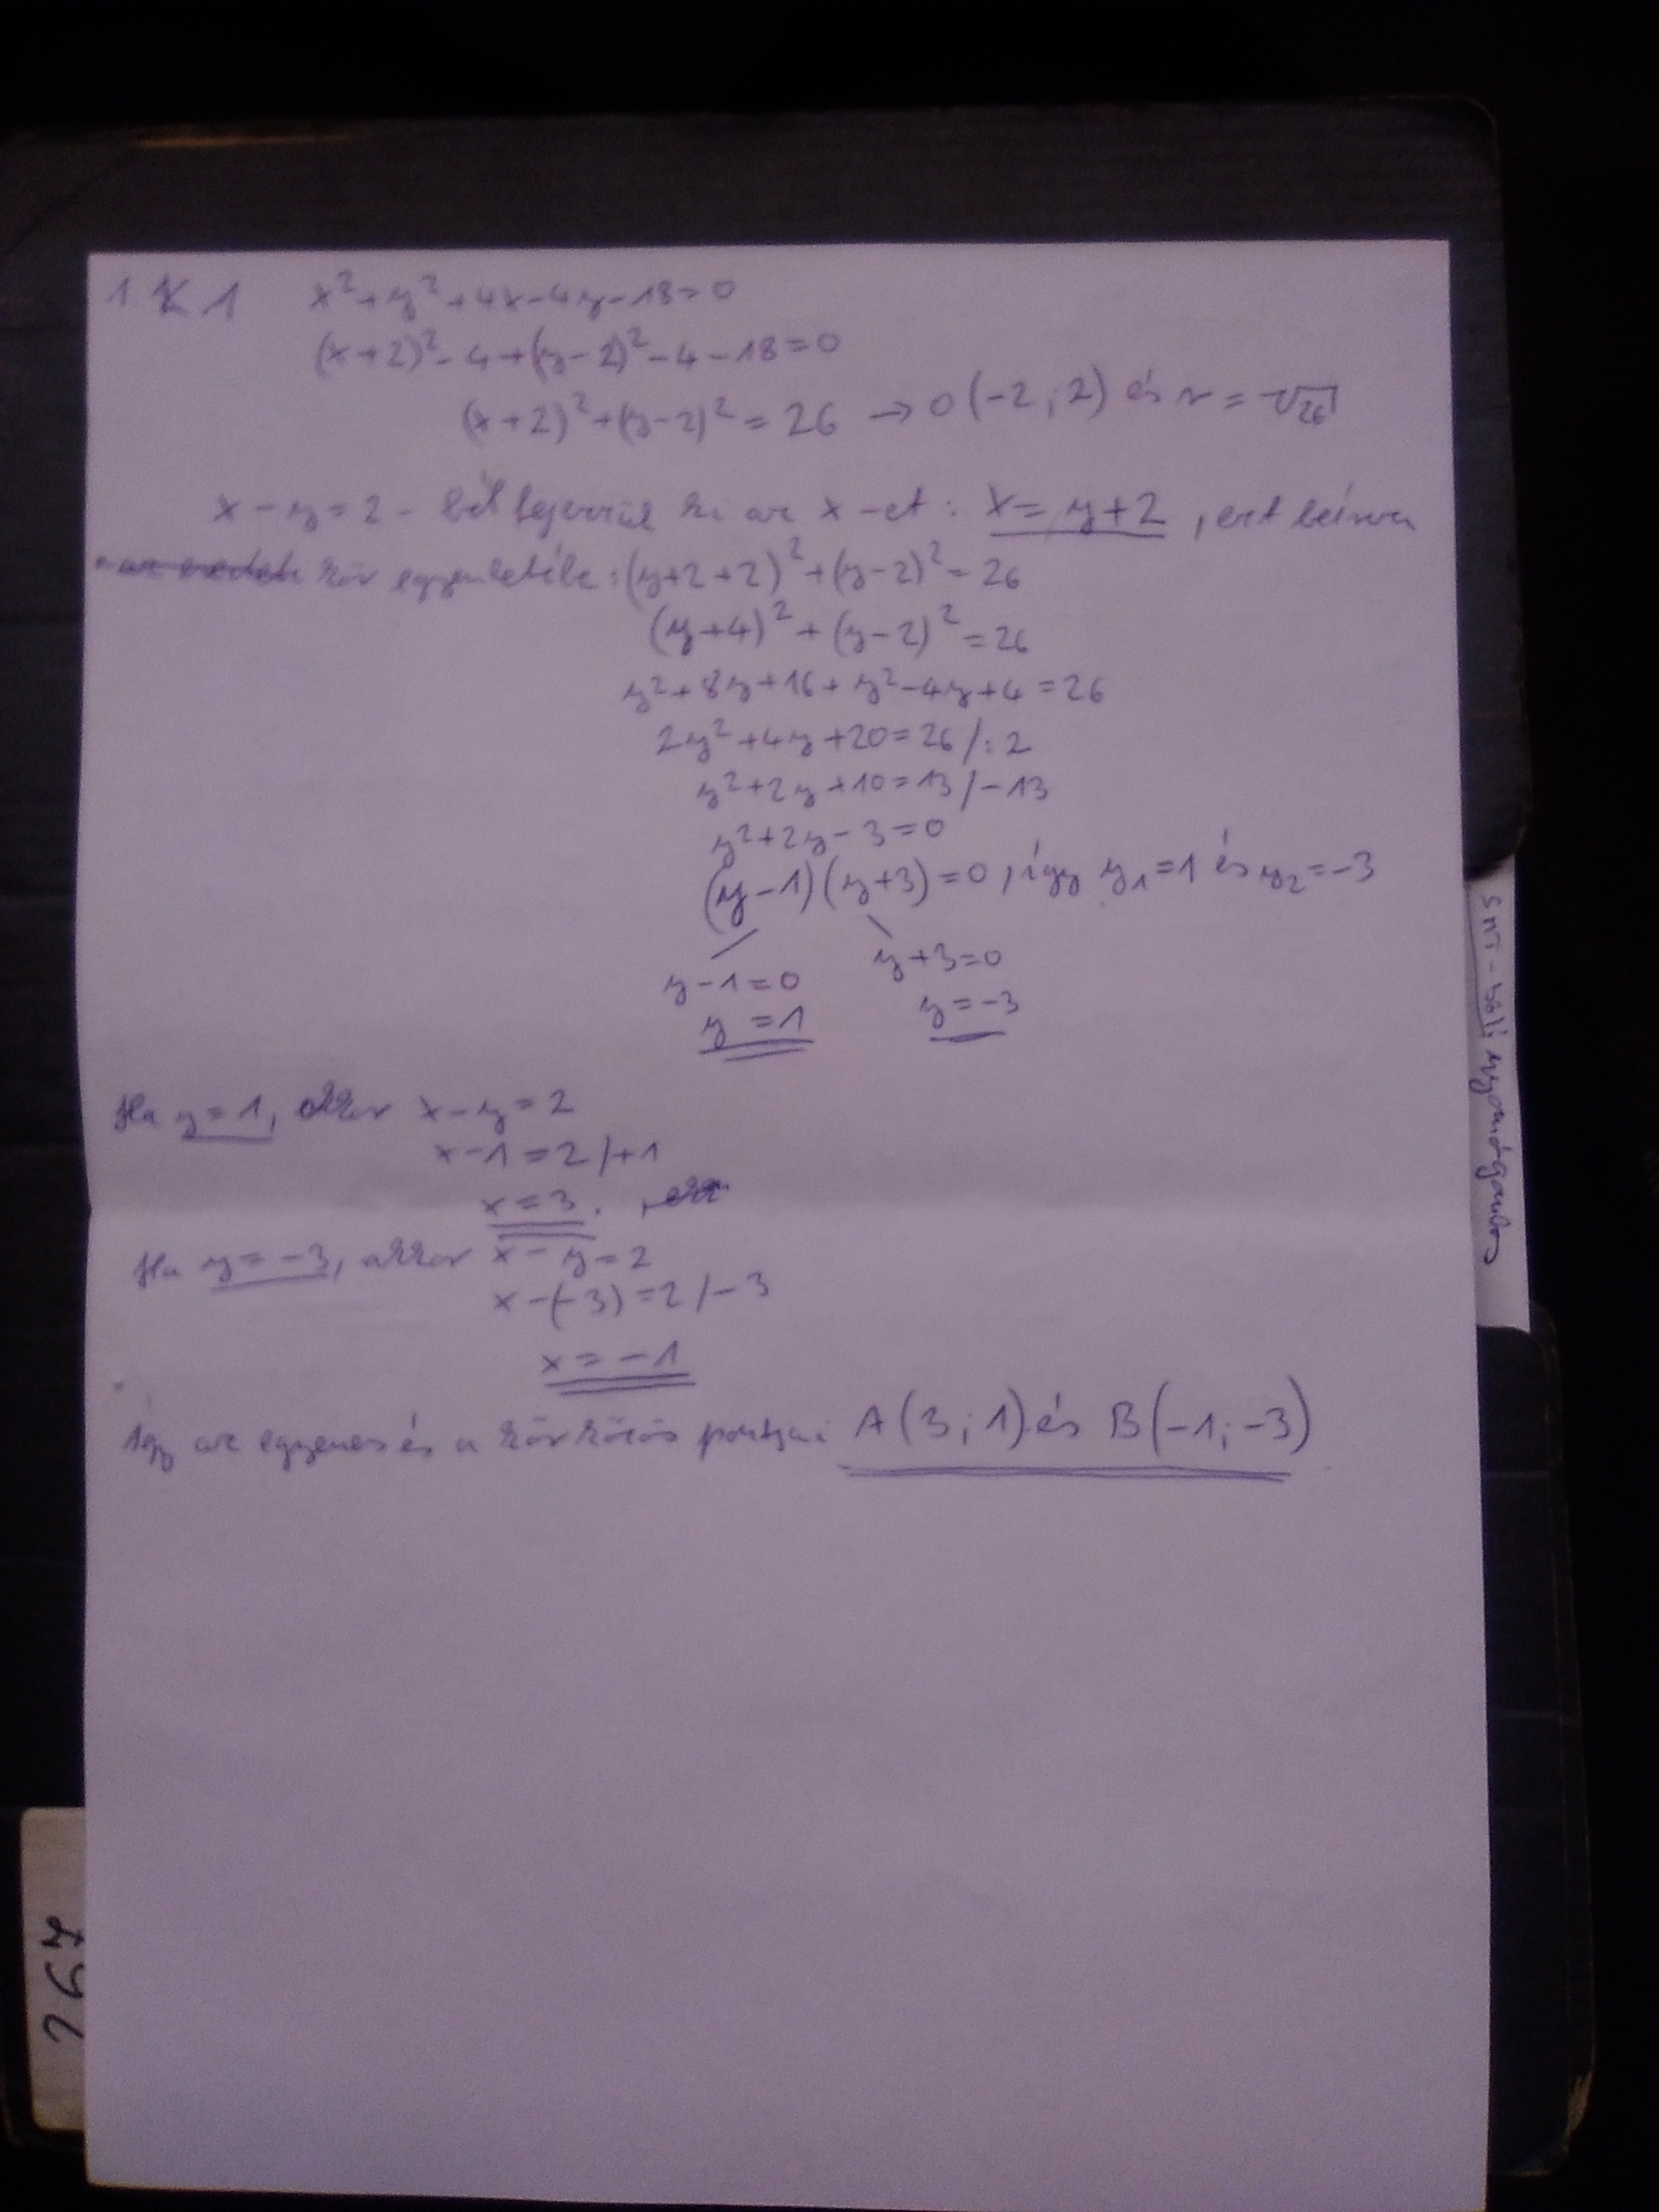 1. K 1 x²+y²+4x-4y-18=0
(x+2)²-4+(y-2)²-4-18=0
(x+2)²+(y-2)²=26 → O(-2;2) és r=√26
x-y=2-ből fejezzük ki az x-et: x=y+2, ezt beírva
kör egyenletébe: (y+2+2)²+(y-2)²=26
(y+4)²+(y-2)²=26
y²+8y+16+y²-4y+4=26
2y²+4y+20=26/:2
y²+2y+10=13/-13
y²+2y-3=0
(y-1)(y+3)=0, így y₁=1 és y₂=-3
y-1=0 y+3=0
y=1 y=-3
Ha y=1, akkor x-y=2
x-1=2/+1
x=3.
Ha y=-3, akkor x-y=2
x-(-3)=2/-3
x=-1
Így az egyenes és a kör közös pontjai: A(3;1) és B(-1;-3)
267